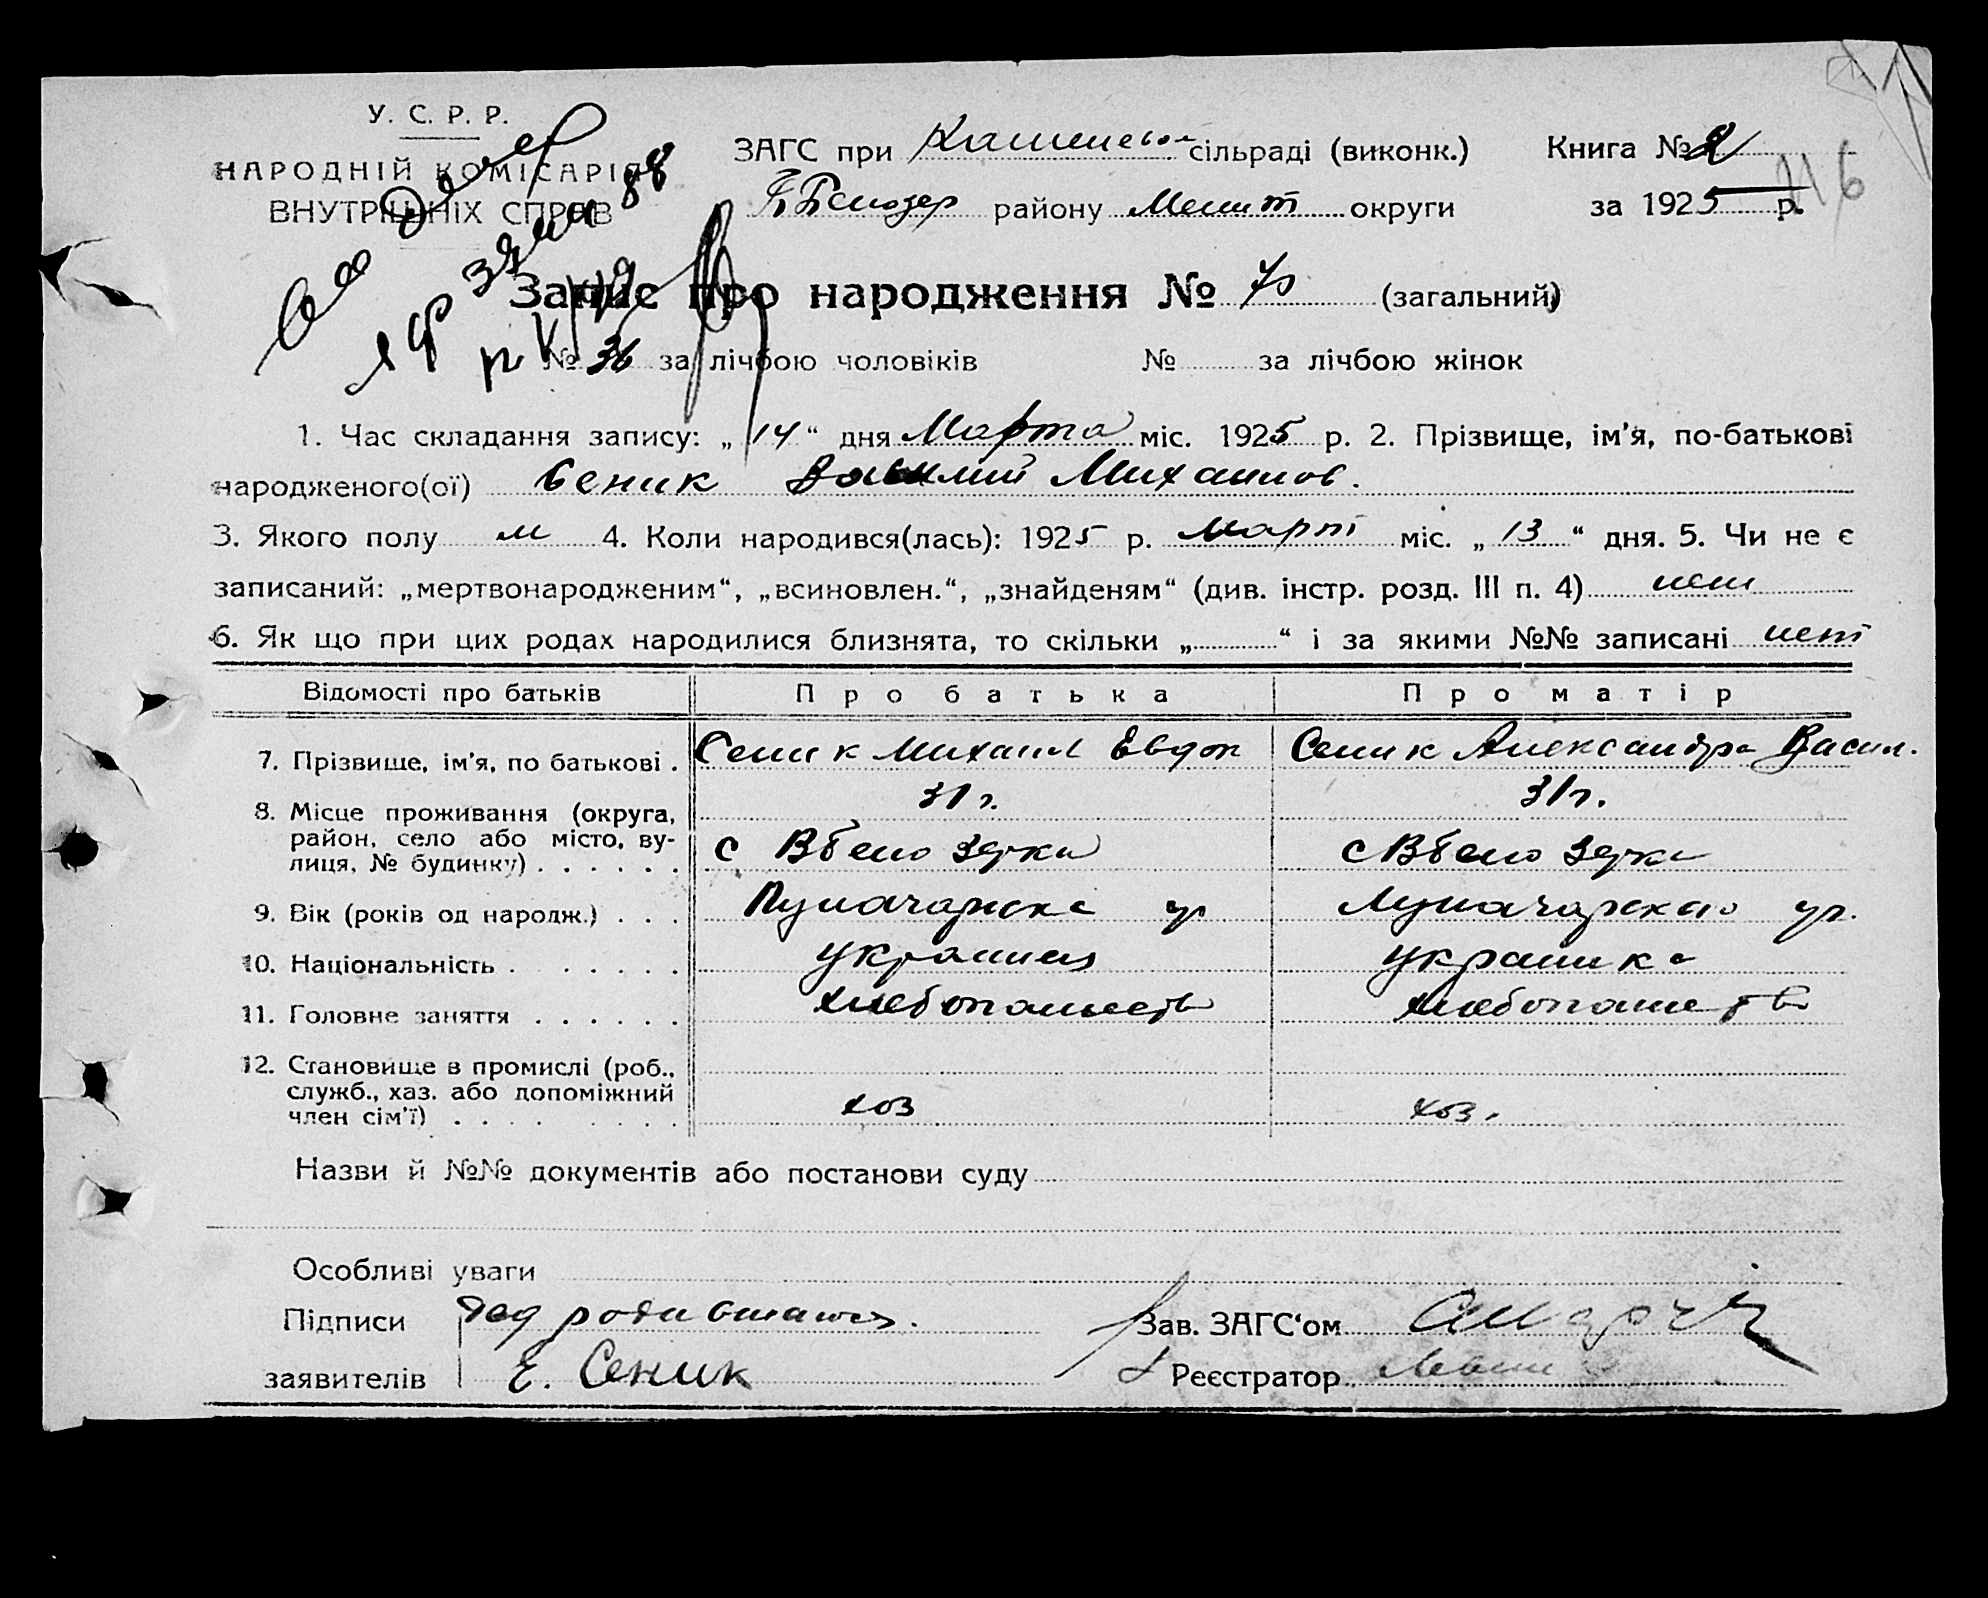 У. С. Р. Р.
НАРОДНІЙ КОМІСАРІЯТ
ВНУТРІШНІХ СПРАВ
ЗАГС при сільраді (виконк.) Книга № 2
району Мелит округи за 1925 р.
116
Запис про народження № (загальний)
№ 36 за лічбою чоловіків № за лічбою жінок
1. Час складання запису: „ 14 “ дня Марта міс. 1925 р. 2. Прізвище, ім’я, по-батькові
народженого(ої) Сеник Василий Михайлов.
3. Якого полу м 4. Коли народився(лась): 1925 р. март міс. „ 13 “ дня. 5. Чи не є
записаний: „мертвонародженим“, „всиновлен.“, „знайденям“ (див. інстр. розд. III п. 4) нет
6. Як що при цих родах народилися близнята, то скільки „ “ і за якими №№ записані нет
Відомості про батьків Про батька Про матір
7. Прізвище, ім’я, по батькові . Сеник Михаил Евдок Сеник Александра Васил.
31 г. 31 г.
8. Місце проживання (округа,
район, село або місто, ву-
лиця, № будинку) . . . . . . с В Белозерка с В Белозерка
9. Вік (років од народж.) . . . Луначарска ул Луначарская ул.
10. Національність . . . . . . украинец украинка
11. Головне заняття . . . . . . хлебопашеств хлебопашество
12. Становище в промислі (роб.,
служб., хаз. або допоміжний
член сім’ї) . . . . . . . . хоз хоз.
Назви й №№ документів або постанови суду
Особливі уваги
Підписи Дед родившагося. Зав. ЗАГС‘ом
заявителів Е. Сеник Реєстратор